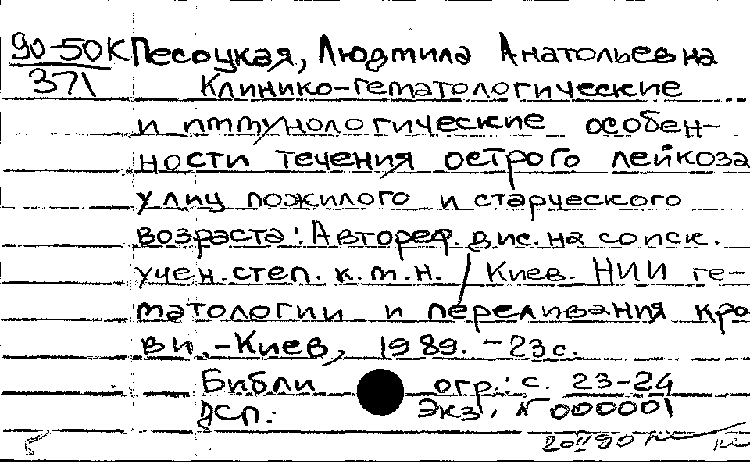 90-50К Песоцкая, Людмила Анатольевна
371 Клинико-гематологические
и иммунологические особен-
ности течения острого лейкоза
у лиц пожилого и старческого
возраста: Автореф. дис. на соиск.
учен. степ. к.м.н. / Киев. НИИ ге-
матологии и переливания кро
ви. - Киев, 1989. - 23 с.
Библи огр.: с. 23-24
ДСП. Экз. N 000001